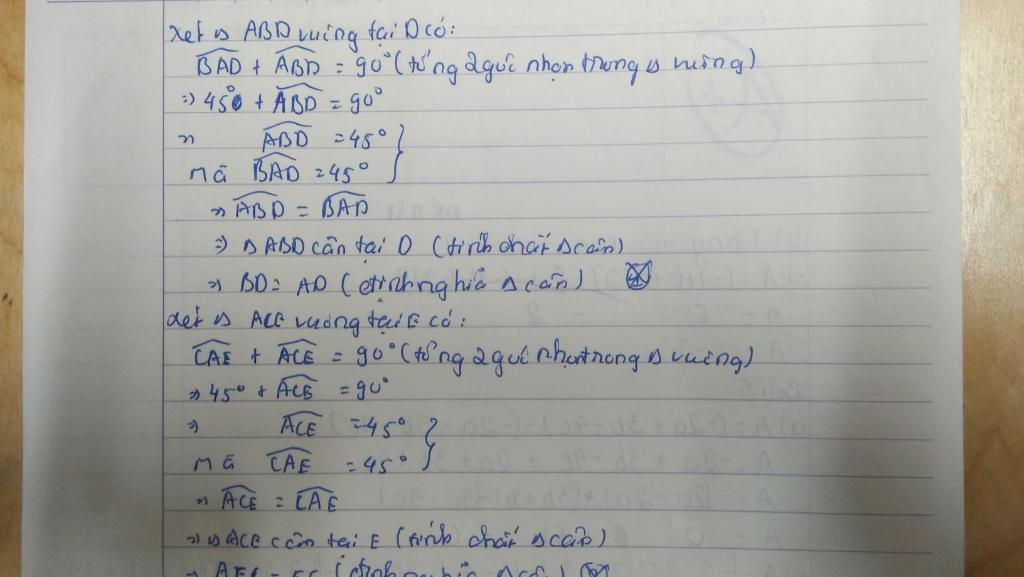 Xét Δ ABD vuông tại D có:
BAD + ABD = 90° (tổng 2 góc nhọn trong Δ vuông)
=> 45° + ABD = 90°
=> ABD = 45°
mà BAD = 45°
=> ABD = BAD
=> Δ ABD cân tại D (tính chất Δ cân)
=> BD = AD (định nghĩa Δ cân)
Xét Δ ACE vuông tại E có:
CAE + ACE = 90° (tổng 2 góc nhọn trong Δ vuông)
=> 45° + ACE = 90°
=> ACE = 45°
mà CAE = 45°
=> ACE = CAE
=> Δ ACE cân tại E (tính chất Δ cân)